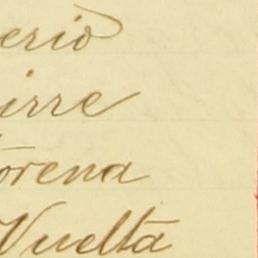 erio
irre
orena
Vuelta